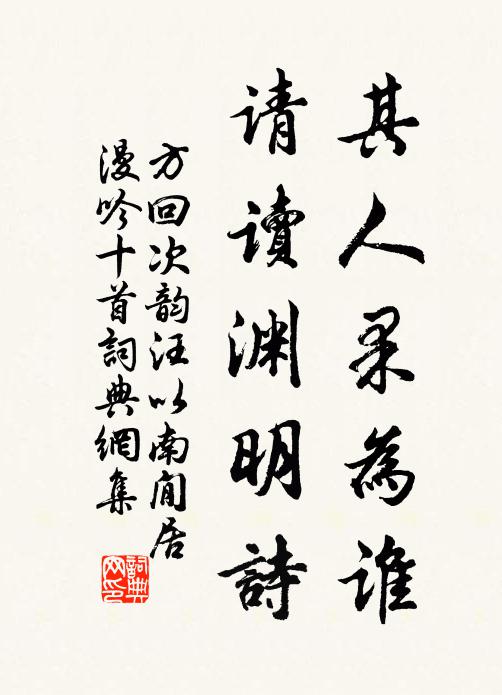 其人果為誰
請讀淵明詩
方回次韵汪以南閒居
漫吟十首詞典網集
詞典网印